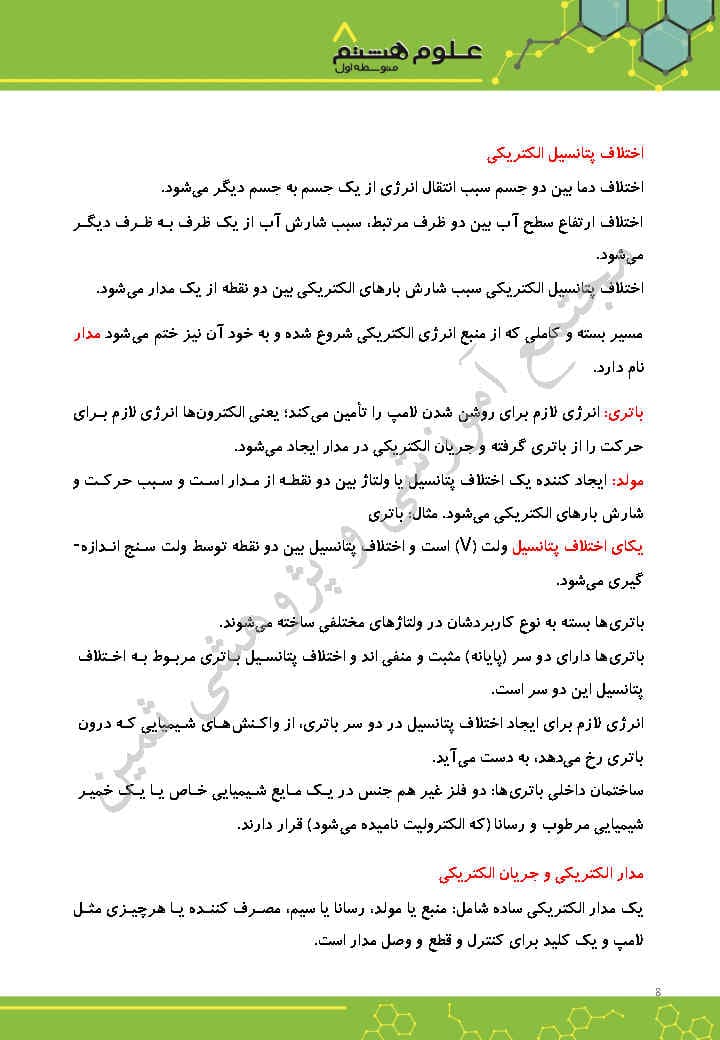 علوم هشتم
متوسطه اول
اختلاف پتانسیل الکتریکی
اختلاف دما بین دو جسم سبب انتقال انرژی از یک جسم به جسم دیگر می‌شود.
اختلاف ارتفاع سطح آب بین دو ظرف مرتبط، سبب شارش آب از یک ظرف به ظرف دیگر
می‌شود.
اختلاف پتانسیل الکتریکی سبب شارش بارهای الکتریکی بین دو نقطه از یک مدار می‌شود.
مسیر بسته و کاملی که از منبع انرژی الکتریکی شروع شده و به خود آن نیز ختم می‌شود مدار
نام دارد.
باتری: انرژی لازم برای روشن شدن لامپ را تأمین می‌کند؛ یعنی الکترون‌ها انرژی لازم برای
حرکت را از باتری گرفته و جریان الکتریکی در مدار ایجاد می‌شود.
مولد: ایجاد کننده یک اختلاف پتانسیل یا ولتاژ بین دو نقطه از مدار است و سبب حرکت و
شارش بارهای الکتریکی می‌شود. مثال: باتری
یکای اختلاف پتانسیل ولت (V) است و اختلاف پتانسیل بین دو نقطه توسط ولت سنج اندازه-
گیری می‌شود.
باتری‌ها بسته به نوع کاربردشان در ولتاژهای مختلفی ساخته می‌شوند.
باتری‌ها دارای دو سر (پایانه) مثبت و منفی اند و اختلاف پتانسیل باتری مربوط به اختلاف
پتانسیل این دو سر است.
انرژی لازم برای ایجاد اختلاف پتانسیل در دو سر باتری، از واکنش‌های شیمیایی که درون
باتری رخ می‌دهد، به دست می‌آید.
ساختمان داخلی باتری‌ها: دو فلز غیر هم جنس در یک مایع شیمیایی خاص یا یک خمیر
شیمیایی مرطوب و رسانا (که الکترولیت نامیده می‌شود) قرار دارند.
مدار الکتریکی و جریان الکتریکی
یک مدار الکتریکی ساده شامل: منبع یا مولد، رسانا یا سیم، مصرف کننده یا هرچیزی مثل
لامپ و یک کلید برای کنترل و قطع و وصل مدار است.
مجتمع آموزشی و پژوهشی ثمین
8